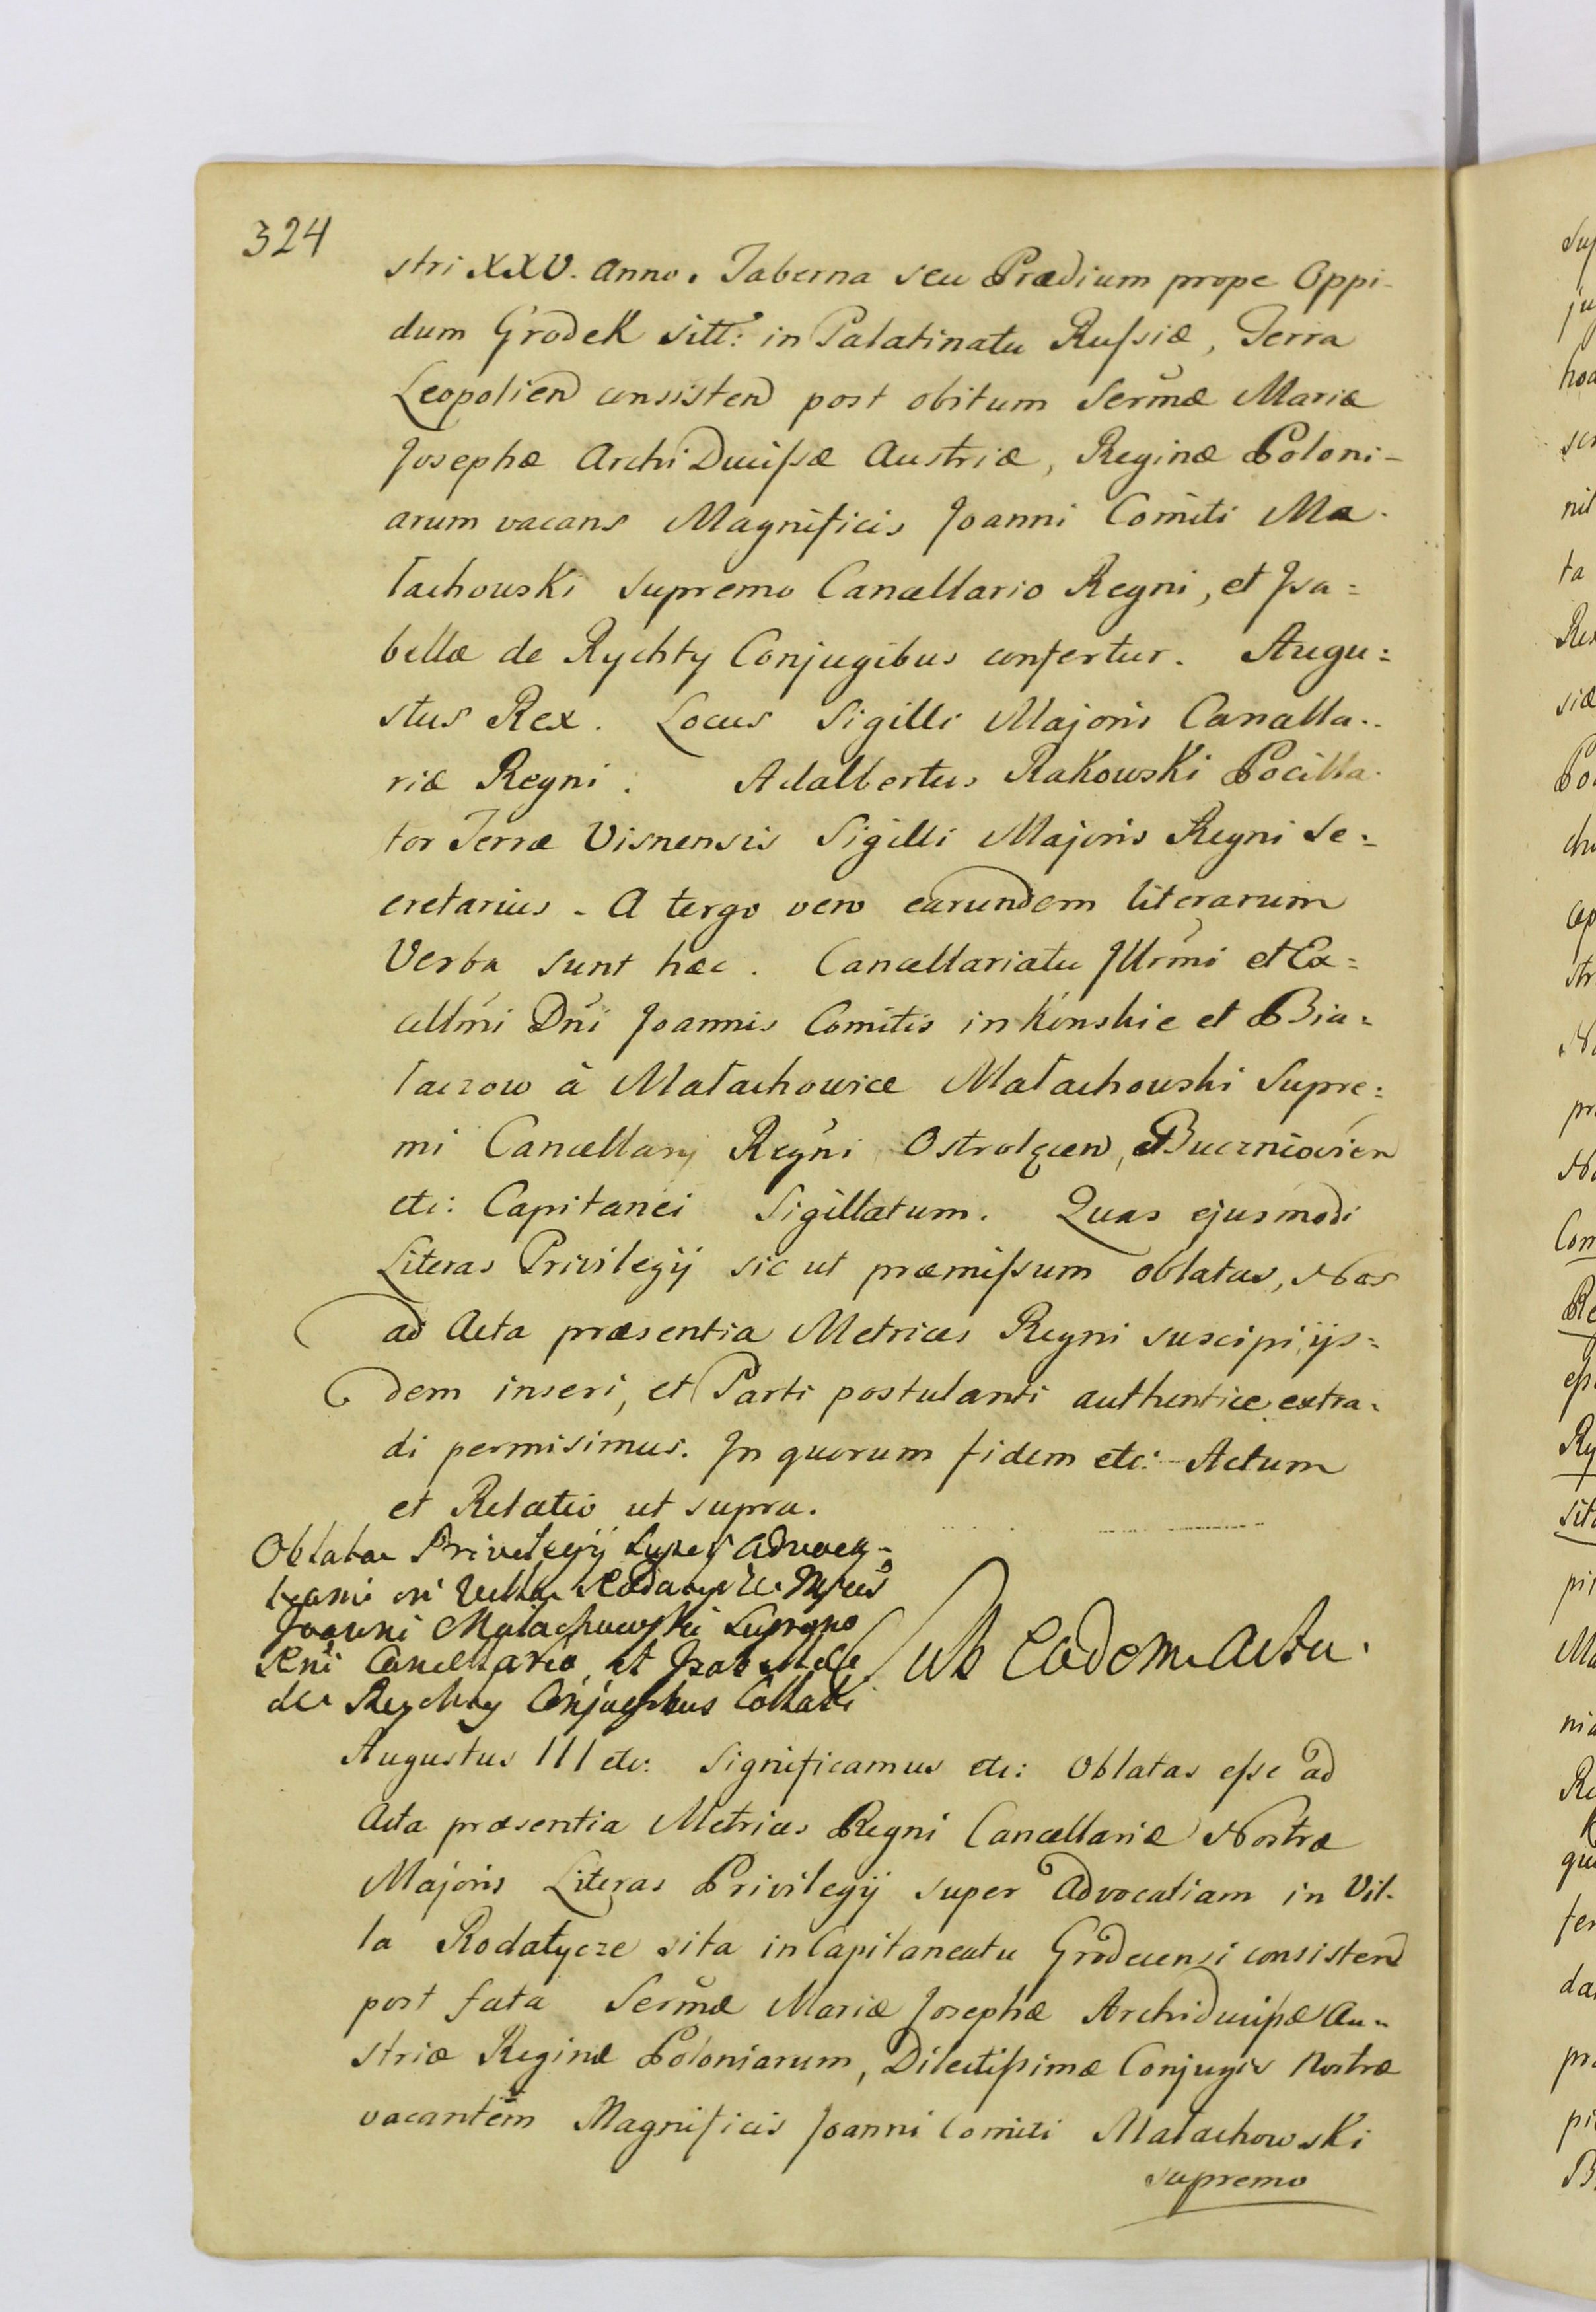 324
stri XXV. Anno. Taberna seu Prædium prope Oppi-
dum Grodek sitt: in Palatinatu Russiæ, Terra
Leopolien consisten post obitum Sermæ Mariæ
Josephæ ArchiDucissæ Austriæ, Reginæ Poloni-
arum vacans Magnificis Joanni Comiti Ma-
łachowski Supremo Cancellario Regni, et Isa=
bellæ de Rychty Conjugibus confertur. Augu=
stus Rex. Locus Sigilli Majoris Cancella-
riæ Regni. Adalbertus Rakowski Pocilla-
tor Terræ Visnensis Sigilli Majoris Regni Se=
cretarius - A tergo vero earundem literarum
Verba sunt hæc. Cancellariatu Illrmi et Ex=
cellmi Dni Joannis Comitis in Konskie et Bia=
łaczow à Małachowice Małachowski Supre=
mi Cancellarij Regni Ostrołęcen, et Buczniovien
etc: Capitanei Sigillatum. Quas ejusmodi
Literas Privilegij sic ut præmissum oblatas, Nos
ad Acta præsentia Metrices Regni suscipi, ijs=
dem inseri, et Parti postulanti authentice extra=
di permisimus. In quorum fidem etc: Actum
et Relatio ut supra.
Oblatae Privilegij Super Advoca-
tiam in Villa Rodatycze Mfcis
Joanni Małachowski Supremo
Reni Cancellario, et Isabellæ
de Rychty Conjugibus Collati
Sub Eadem Actu.
Augustus III etc: Significamus etc: Oblatas esse ad
Acta præsentia Metrices Regni Cancellariæ Nostræ
Majoris Literas Privilegij super Advocatiam in Vil-
la Rodatycze sita in Capitaneatu Grodecensi consisten
post fata Sermæ Mariæ Josephæ Archiducissæ Au=
striæ Reginæ Poloniarum, Dilectissimæ Conjugis Nostræ
vacantem Magnificis Joanni Comiti Małachowski
supremo